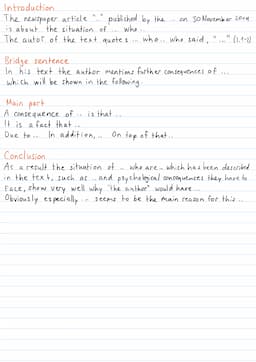 Introduction
The newspaper article "..." published by the ... on 30 November 2014
is about the situation of ... who ...
The autor of the text quotes ... who ... who said, "..." (l.1-1)
Bridge sentence
In his text the author mentions further consequences of ...
which will be shown in the following.
Main part
A consequence of ... is that ...
It is a fact that ...
Due to ... In addition, ... On top of that ...
Conclusion
As a result the situation of ... who are ... which has been described
in the text, such as ... and psychological consequences they have to
face, show very well why "the author" would have ...
Obviously especially ... seems to be the main reason for this ...